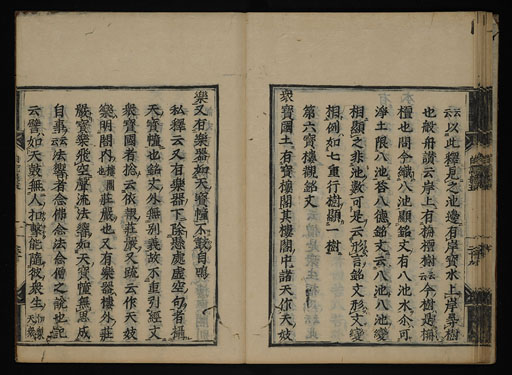 云以此釋見之池邊有岸寶水上岸尋樹
也般舟讚云岸上有栴檀樹云云今樹是栴
檀也問今續八池顯銘文有八池水余可
淨土限八池答八德銘文云八池八池變
相顯之非池數可是云形言銘文形文變
相例如七重行樹顯一樹
第六寶樓觀銘文
衆寶國土有寶樓閣其樓閣中諸天作天妓
樂又有樂器如天寶幢不鼓自鳴
私釋云又有樂器下除懸處虚空句者攝
天寶幢也銘文外無別義故不重列經文
衆寶國者捨云依報莊嚴又疏云作天妓
樂明閣内莊嚴也又有樂器樓外莊
嚴寶樂飛空聲流法響如天寶幢無思成
自事云云法響者念佛念法念僧之說也記
云譬如天鼓無人扣擊能隨彼衆生